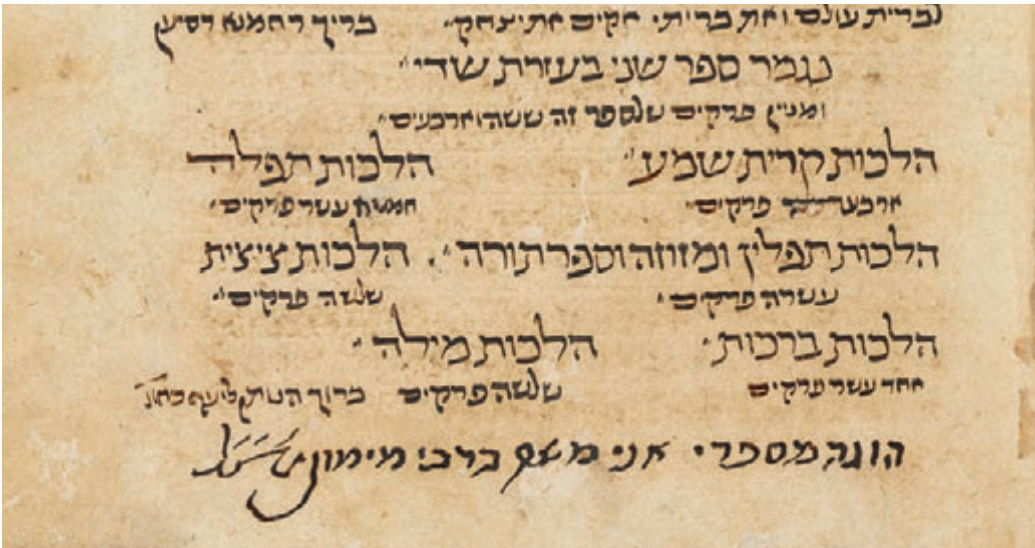 לברית עולם ואת בריתי אקים את יצחק בריך רחמנא דסייען
נגמר ספר שני בעזרת שדי
ומנין פרקים שלספר זה ששה וארבעים
הלכות קרית שמע הלכות תפלה
ארבעה פרקים חמשא עשר פרקים
הלכות תפלין ומזוזה וספר תורה הלכות ציצית
עשרה פרקים שלשה פרקים
הלכות ברכות הלכות מילה
אחד עשר פרקים שלשה פרקים ברוך הנותן ליעף כח
הוגה מספרי אני משה ברבי מימון זצ״ל